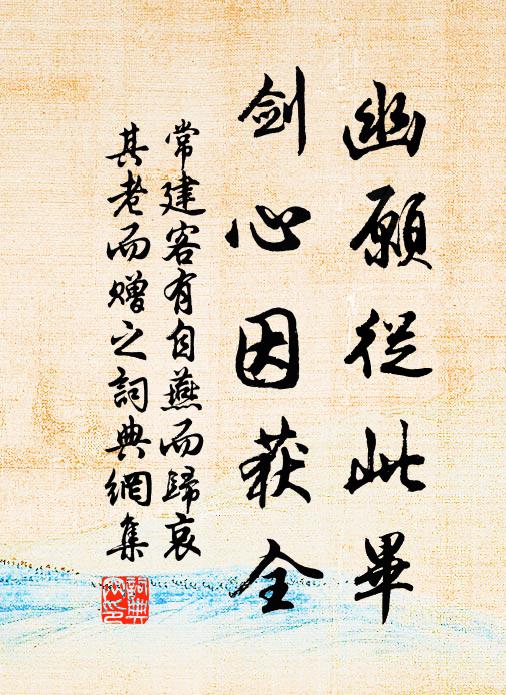 幽願從此畢
劍心因获全
常建客有自燕而歸哀
其老而贈之詞典網集